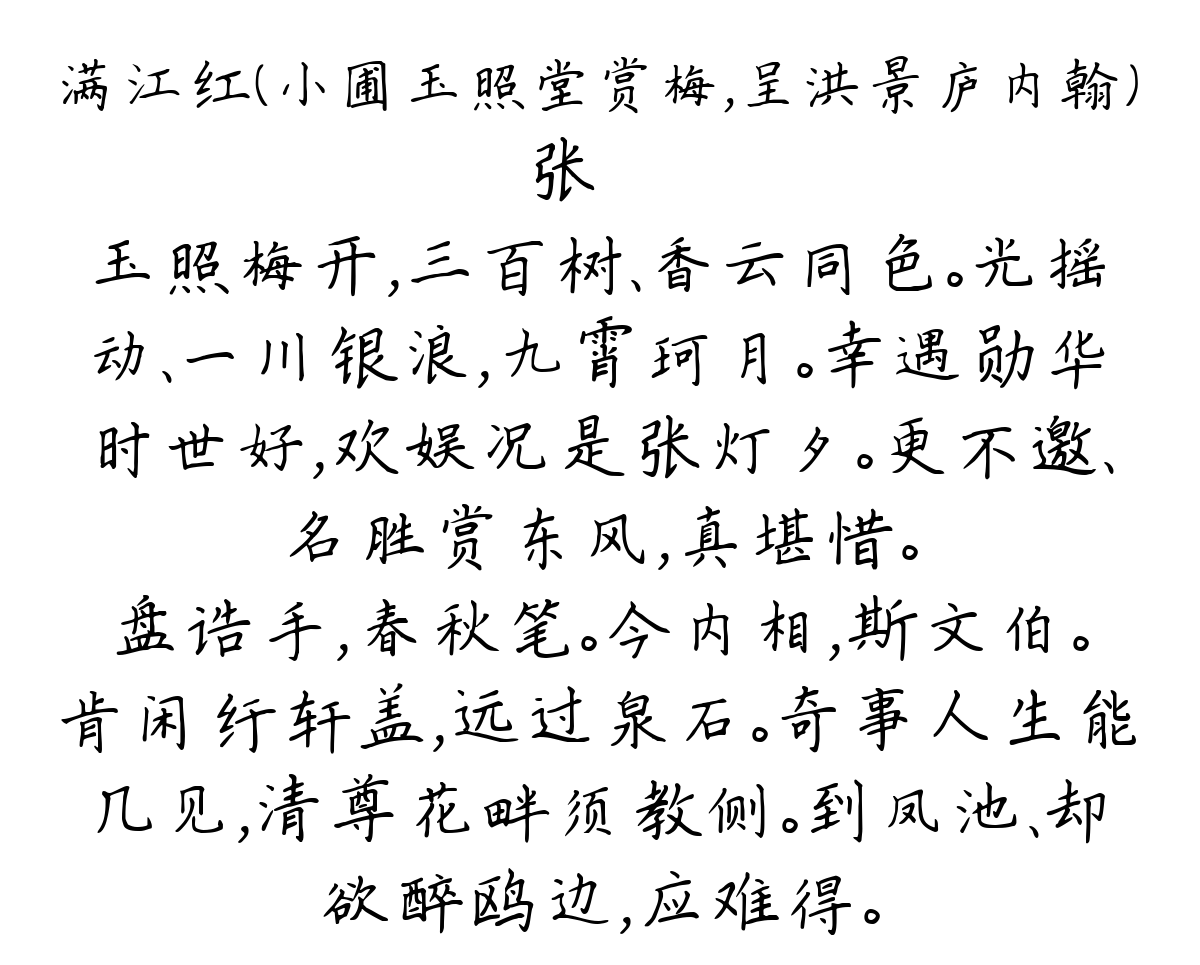 满江红(小圃玉照堂赏梅,呈洪景庐内翰)
张
玉照梅开,三百树、香云同色。光摇
动、一川银浪,九霄珂月。幸遇勋华
时世好,欢娱况是张灯夕。更不邀、
名胜赏东风,真堪惜。
盘诰手,春秋笔。今内相,斯文伯。
肯闲纡轩盖,远过泉石。奇事人生能
几见,清尊花畔须教侧。到凤池、却
欲醉鸥边,应难得。